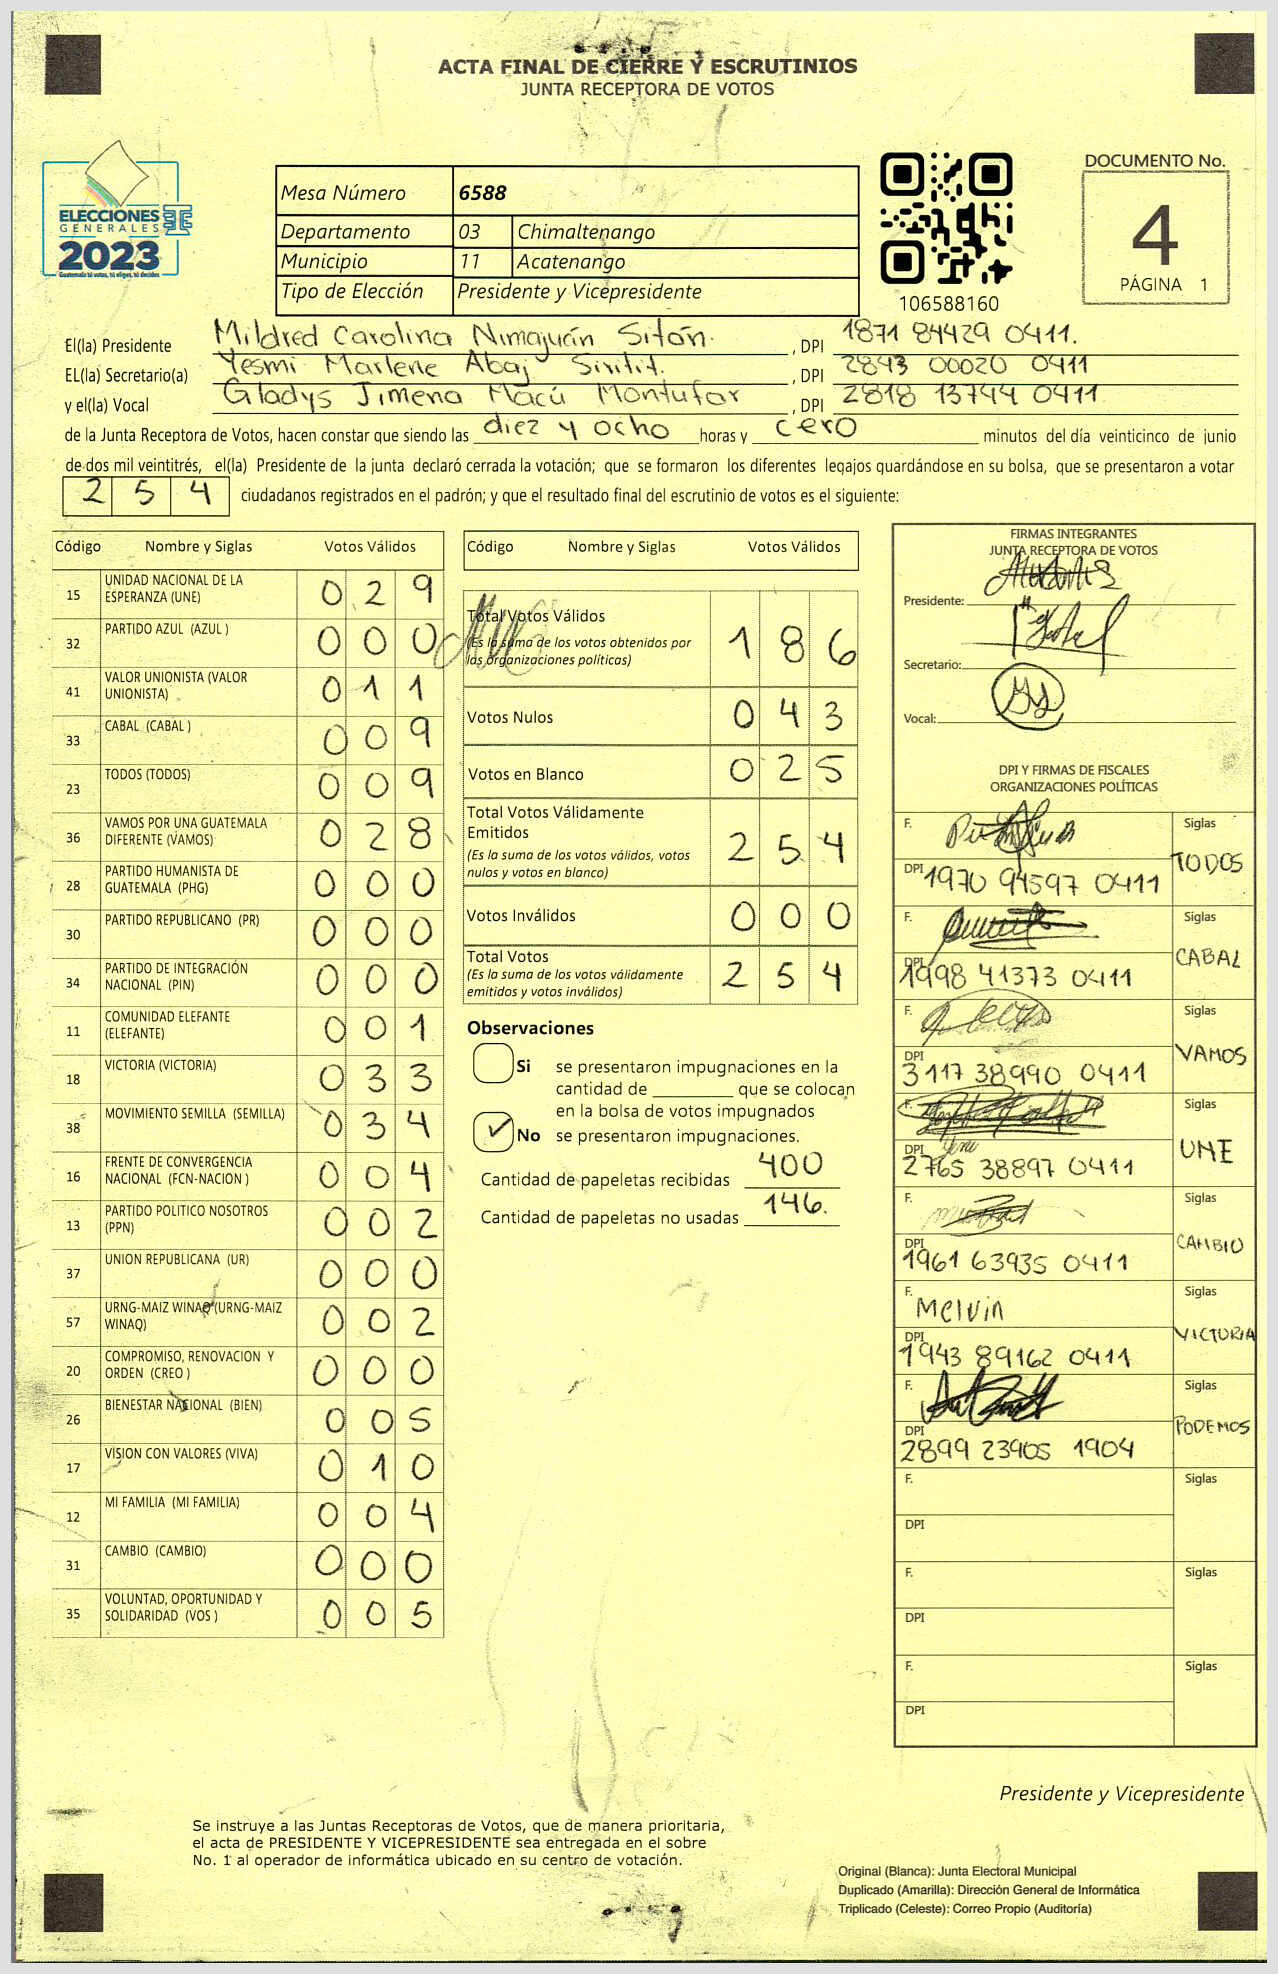 ACTA FINAL DE CIERRE Y ESCRUTINIOS
JUNTA RECEPTORA DE VOTOS
ELECCIONES
GENERALES
2023
Guatemala tú votas, tú eliges, tú decides
Mesa Número 6588
Departamento 03 Chimaltenango
Municipio 11 Acatenango
Tipo de Elección Presidente y Vicepresidente
106588160
DOCUMENTO No.
4
PÁGINA 1
El(la) Presidente Mildred Carolina Nimajuán Sitán. , DPI 1871 84429 0411.
EL(la) Secretario(a) Yesmi Marlene Abaj Siritit. , DPI 2843 00020 0411
y el(la) Vocal Gladys Jimena Macú Montufar , DPI 2818 13744 0411
de la Junta Receptora de Votos, hacen constar que siendo las diez y ocho horas y cero minutos del día veinticinco de junio
de dos mil veintitrés, el(la) Presidente de la junta declaró cerrada la votación; que se formaron los diferentes legajos guardándose en su bolsa, que se presentaron a votar
2 5 4 ciudadanos registrados en el padrón; y que el resultado final del escrutinio de votos es el siguiente:
Código Nombre y Siglas Votos Válidos
15 UNIDAD NACIONAL DE LA ESPERANZA (UNE) 0 2 9
32 PARTIDO AZUL (AZUL ) 0 0 0
41 VALOR UNIONISTA (VALOR UNIONISTA) 0 1 1
33 CABAL (CABAL ) 0 0 9
23 TODOS (TODOS) 0 0 9
36 VAMOS POR UNA GUATEMALA DIFERENTE (VAMOS) 0 2 8
28 PARTIDO HUMANISTA DE GUATEMALA (PHG) 0 0 0
30 PARTIDO REPUBLICANO (PR) 0 0 0
34 PARTIDO DE INTEGRACIÓN NACIONAL (PIN) 0 0 0
11 COMUNIDAD ELEFANTE (ELEFANTE) 0 0 1
18 VICTORIA (VICTORIA) 0 3 3
38 MOVIMIENTO SEMILLA (SEMILLA) 0 3 4
16 FRENTE DE CONVERGENCIA NACIONAL (FCN-NACION ) 0 0 4
13 PARTIDO POLITICO NOSOTROS (PPN) 0 0 2
37 UNION REPUBLICANA (UR) 0 0 0
57 URNG-MAIZ WINAQ (URNG-MAIZ WINAQ) 0 0 2
20 COMPROMISO, RENOVACION Y ORDEN (CREO ) 0 0 0
26 BIENESTAR NACIONAL (BIEN) 0 0 5
17 VISION CON VALORES (VIVA) 0 1 0
12 MI FAMILIA (MI FAMILIA) 0 0 4
31 CAMBIO (CAMBIO) 0 0 0
35 VOLUNTAD, OPORTUNIDAD Y SOLIDARIDAD (VOS ) 0 0 5
Código Nombre y Siglas Votos Válidos
Total Votos Válidos 1 8 6
(Es la suma de los votos obtenidos por
las organizaciones políticas)
Votos Nulos 0 4 3
Votos en Blanco 0 2 5
Total Votos Válidamente
Emitidos 2 5 4
(Es la suma de los votos válidos, votos
nulos y votos en blanco)
Votos Inválidos 0 0 0
Total Votos 2 5 4
(Es la suma de los votos válidamente
emitidos y votos inválidos)
Observaciones
Si se presentaron impugnaciones en la
cantidad de ________ que se colocan
en la bolsa de votos impugnados
No se presentaron impugnaciones.
Cantidad de papeletas recibidas 400
Cantidad de papeletas no usadas 146.
FIRMAS INTEGRANTES
JUNTA RECEPTORA DE VOTOS
Presidente:
Secretario:
Vocal:
DPI Y FIRMAS DE FISCALES
ORGANIZACIONES POLÍTICAS
F. Siglas
DPI 1970 94597 0411 TODOS
F. Siglas
DPI 1998 41373 0411 CABAL
F. Siglas
DPI 3117 38990 0411 VAMOS
F. Siglas
DPI 2765 38897 0411 UNE
F. Siglas
DPI 1961 63935 0411 CAMBIO
F. Melvin Siglas
DPI 1943 89162 0411 VICTORIA
F. Siglas
DPI 2899 23905 1904 PODEMOS
F. Siglas
DPI
F. Siglas
DPI
F. Siglas
DPI
Presidente y Vicepresidente
Se instruye a las Juntas Receptoras de Votos, que de manera prioritaria,
el acta de PRESIDENTE Y VICEPRESIDENTE sea entregada en el sobre
No. 1 al operador de informática ubicado en su centro de votación.
Original (Blanca): Junta Electoral Municipal
Duplicado (Amarilla): Dirección General de Informática
Triplicado (Celeste): Correo Propio (Auditoría)